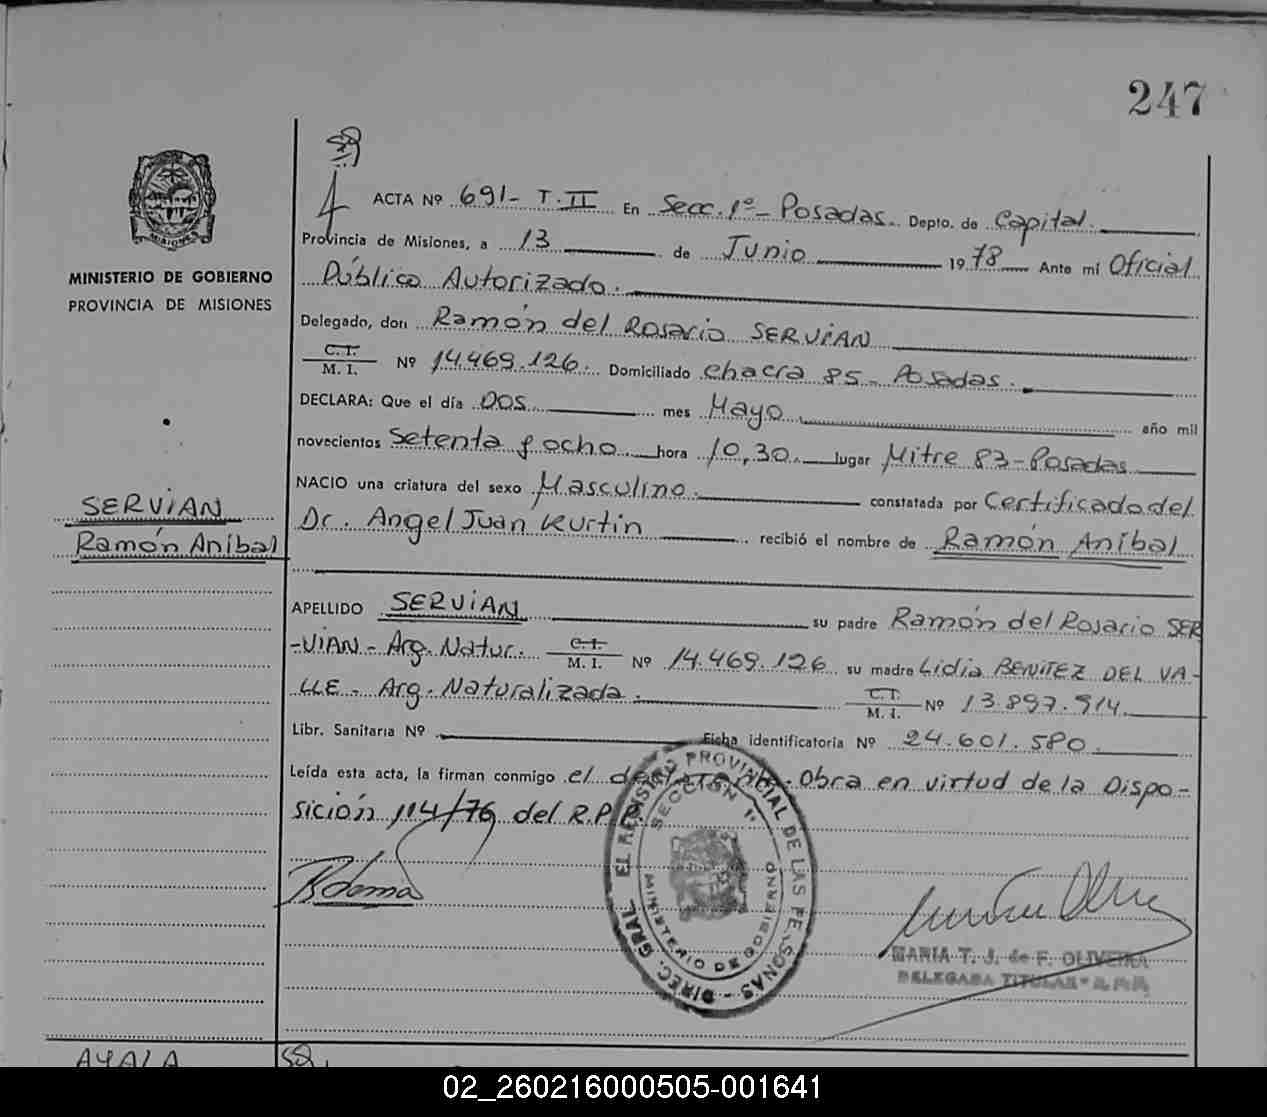 247
MINISTERIO DE GOBIERNO
PROVINCIA DE MISIONES
SERVIAN
Ramón Aníbal
ACTA Nº 691- T. II En Secc. 1º- Posadas. Depto. de Capital.
Provincia de Misiones, a 13 de Junio 1978 Ante mí Oficial
Público Autorizado.
Delegado, don Ramón del Rosario SERVIAN
C. I.
M. I. Nº 14.469.126. Domiciliado chacra 85- Posadas.
DECLARA: Que el día DOS mes Mayo año mil
novecientos setenta y ocho. hora 10,30. lugar Mitre 83-Posadas
NACIO una criatura del sexo Masculino. constatada por Certificado del
Dr. Angel Juan Kurtin recibió el nombre de Ramón Aníbal
APELLIDO SERVIAN su padre Ramón del Rosario SER
-VIAN- Arg. Natur. C. I.
M. I. Nº 14.469.126 su madre Lidia BENITEZ DEL VA-
LLE- Arg. Naturalizada. C. I.
M. I. Nº 13.897.914.
Libr. Sanitaria Nº Ficha identificatoria Nº 24.601.580.
Leída esta acta, la firman conmigo el declarante. Obra en virtud de la Dispo-
sición 114/76 del R.P.P.
DIREC. GRAL. EL REGISTRO PROVINCIAL DE LAS PERSONAS
SECCION 1ª
MINISTERIO DE GOBIERNO
MARIA T. J. de F. OLIVEIRA
DELEGADA TITULAR
AYALA
02_260216000505-001641